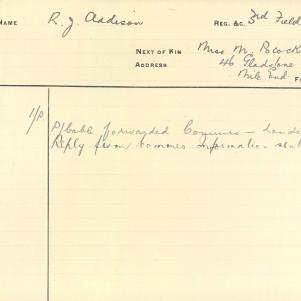 NAME R. J. Addison REG. &C. 3rd Field
NEXT OF KIN Miss M. Pocock
ADDRESS 46 Gladstone
Mile End
1/P P/Cable forwarded Comurs – Londo
Reply from Commrs. Information sent